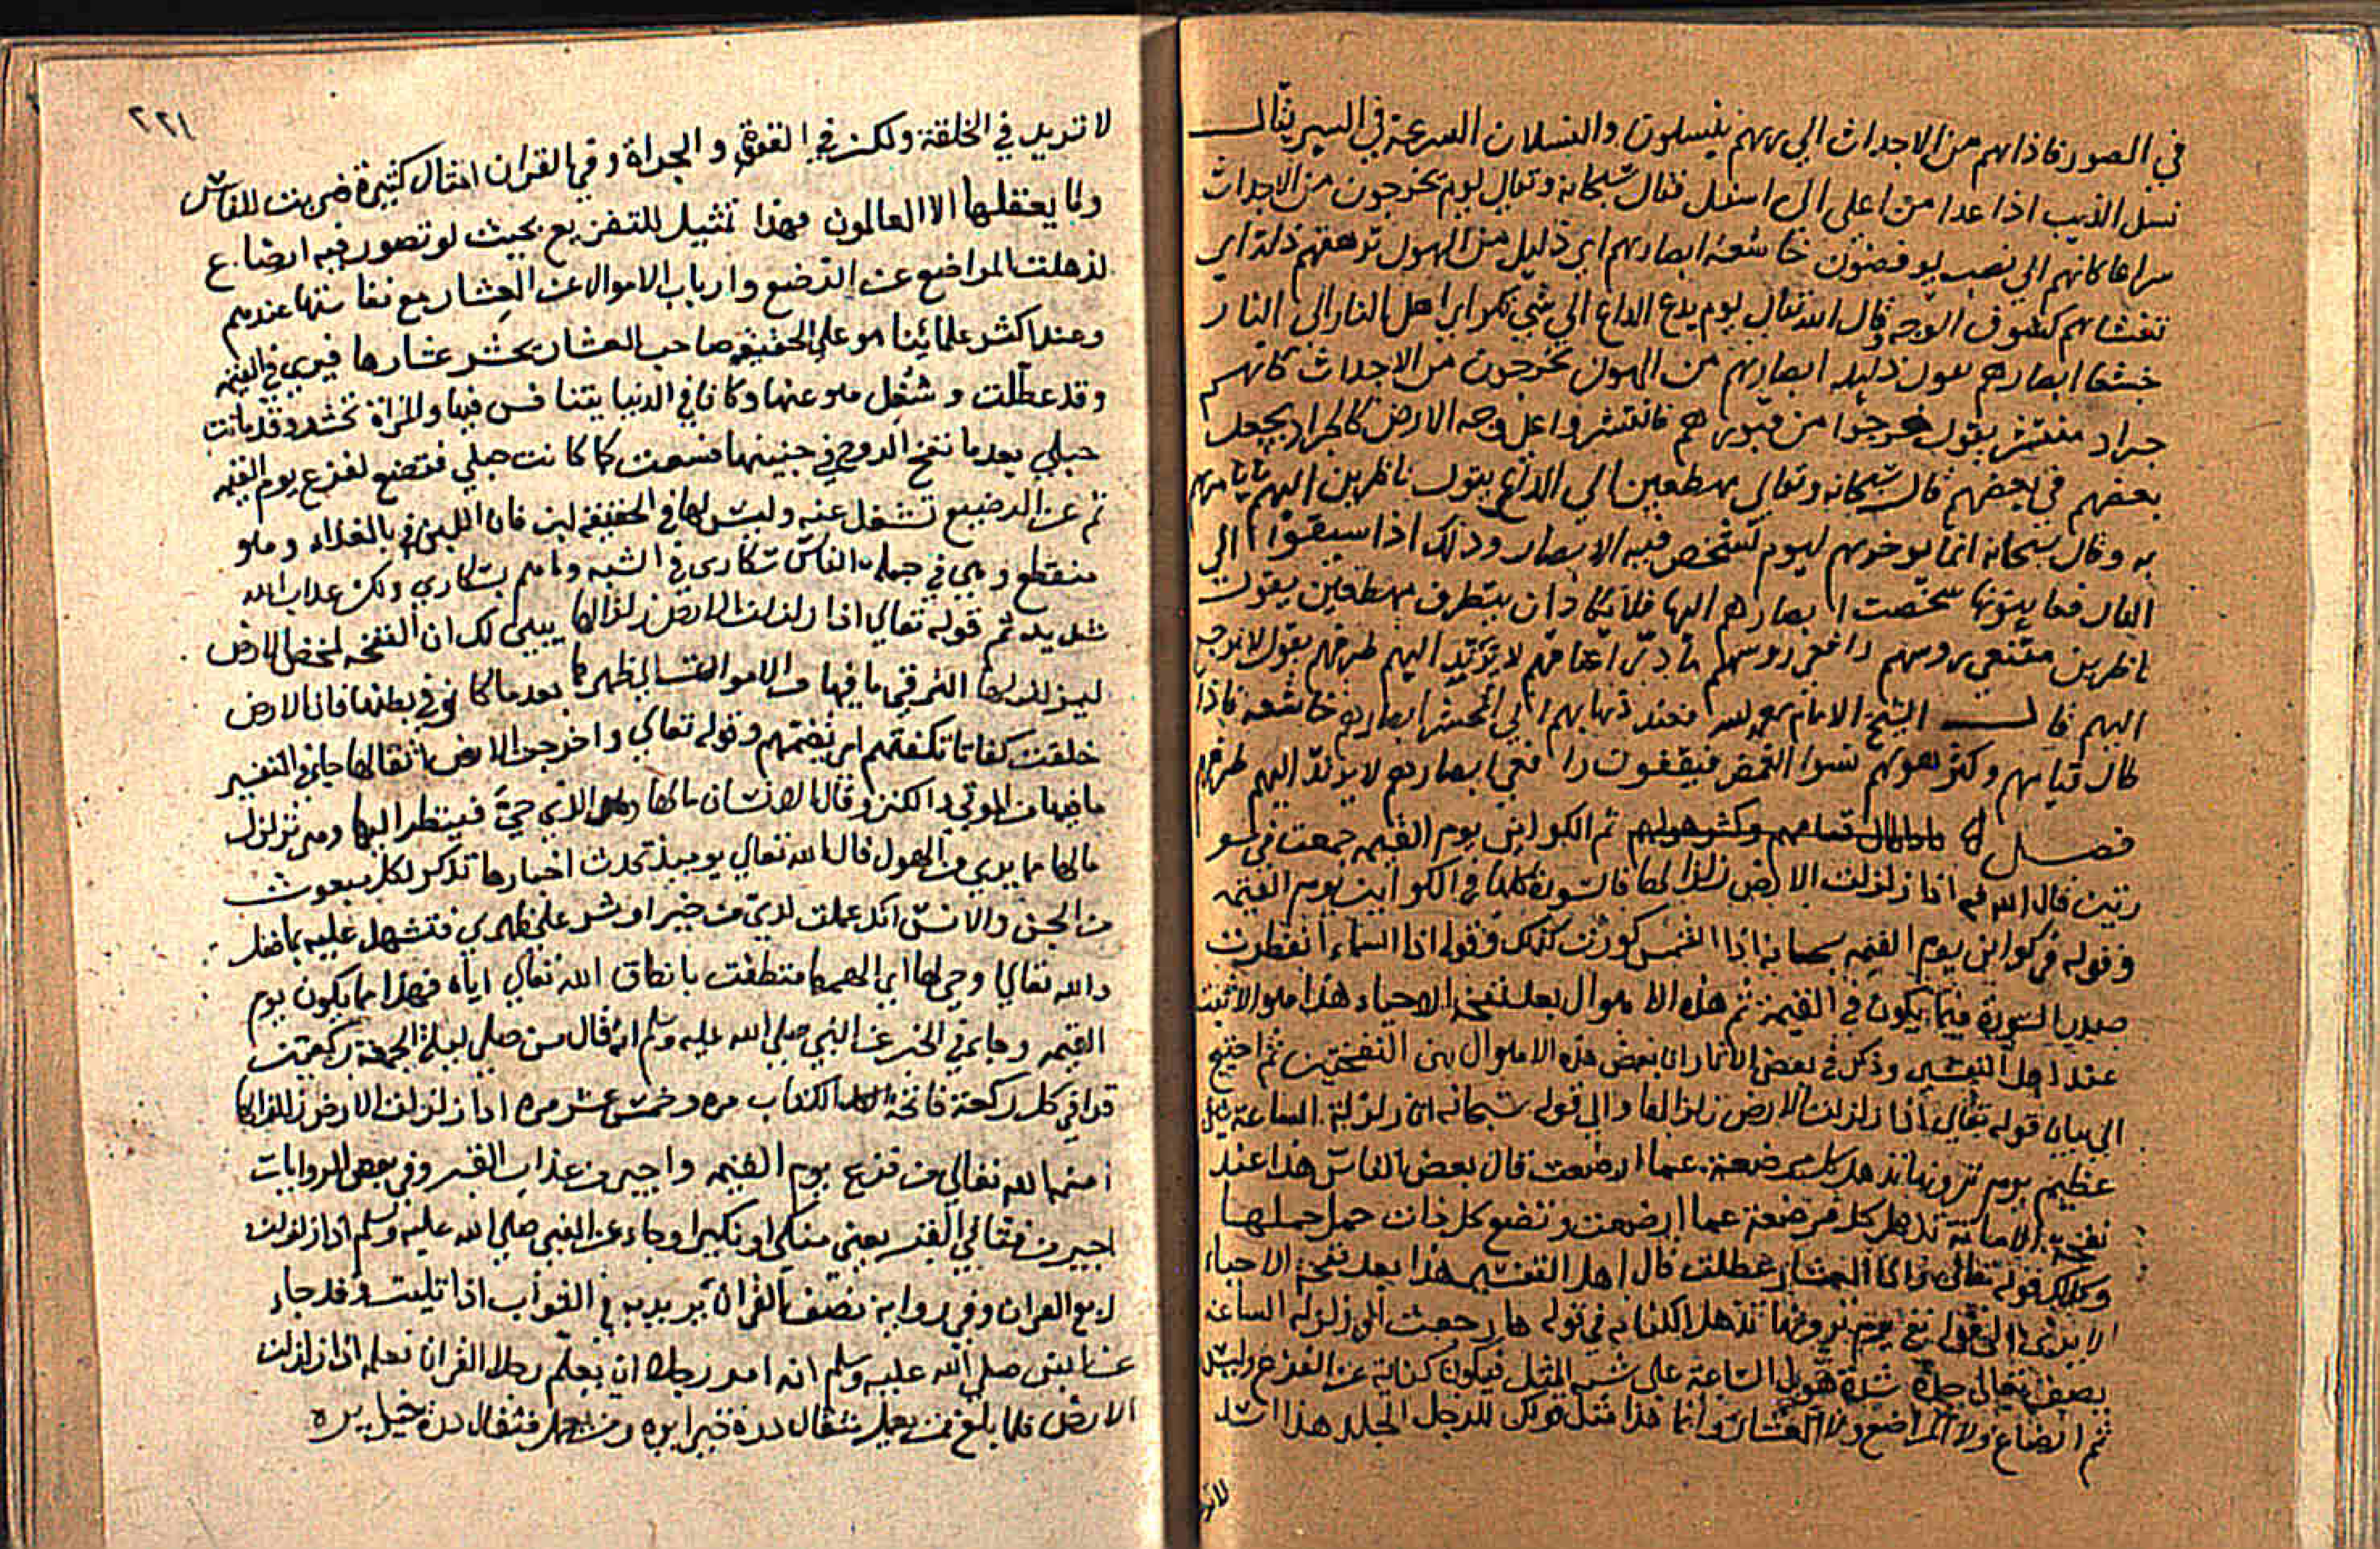 في الصور فاذاهم من الاجداث الي ربهم ينسلون والنسلان السرعة في السير يقال
نسل الذيب اذا عدا من اعلى الى اسفل فقال سبحانه وتعالى يوم يخرجون من الاجداث
سراعا كانهم الي نصب يوفضون خاشعة ابصارهم اي ذليل من الهول ترهقهم ذلة اي
تغشاهم كسوف الوجه وقال الله تعالى يوم يدع الداع الي شي نكر اي اهل النار الى النار
خشعا ابصارهم يقول ذليله ابصارهم من الهول يخرجون من الاجداث كانهم
جراد منتشر يقول خرجوا من قبورهم فانتشروا على وجه الارض كالجراد يجعل
بعضهم في بعضهم قال سبحانه وتعالى مهطعين الي الداع يقول ناظرين اليهم
به وقال سبحانه انما يوخرهم ليوم تشخص فيه الابصار وذلك اذا سيقوا الى
النار فعاينوها شخصت ابصارهم اليها فلا مهطعين يقول
ناظرين مقنعي روسهم رافعي روسهم لا يرتد اليهم طرفهم يقول لا يرجع
اليهم قال الشيخ الامام فعند ذهابهم الي المحشر ابصارهم خاشعة فاذا
طال قيامهم وكثر هولهم فيقفون رافعي ابصارهم لا يرتد اليهم طرفهم
فصل ثم الكواين يوم القيمه جمعت في سو
رتين قال الله اذا زلزلت الارض زلزالها في الكواين يوم القيمه
وقوله في كواين يوم القيمه اذا الشمس كورت كذلك وقوله اذا السماء انفطرت
السورة فيما يكون في القيمة ثم هذه الاهوال بعد نفخة الاحياء هذا هو الاثبت
عند اهل التفسير وذكر في بعض الاثار ان بعض هذه الاهوال بين النفختين ثم احتيج
الى بيان قوله تعالى اذا زلزلت الارض زلزالها والى قوله سبحانه ان زلزلة الساعة شي
عظيم يوم ترونها تذهل كل مرضعة عما ارضعت قال بعض الناس هذا عند
نفخة الاماتة تذهل كل مرضعة عما ارضعت وتضع كل ذات حمل حملها
وكذلك قوله تعالى واذا العشار عطلت قال اهل التفسير هذا بعد نفخة الاحياء
الا يرى الى قوله يوم ترونها تذهل الكنايه في قوله ها رجعت الى زلزلة الساعة
يصف تعالى شدة هول الساعة على المثل فيكون كناية عن الفزع وليس
ثم ارضاع ولا المراضع ولا العشار وانما هذا مثل قولك للرجل الجلد هذا اسد
لاتر
٢٢١
لا تريد في الخلقة ولكن في القوة والجراة وفي القران امثال كثيرة ضربت للناس
وما يعقلها الا العالمون فهذا تمثيل للتفزيع بحيث لو تصور فيه ارضاع
لذهلت المراضع عن الرضيع وارباب الاموال عن العشار مع نفاستها عندهم
وعند اكثر علمائنا هو على الحقيقه صاحب العشار يحشر عشارها فيرى في القيمه
وقد عطلت وشغل هو عنها وكانا في الدنيا يتنافس فيها والمراة تحشر وقد ماتت
حبلى بعد ما نفخ الروح في جنينها فبعثت كما كانت حبلى فتضع لفزع يوم القيمه
ثم عن الرضيع تشغل عنه وليس لها في الحقيقة لبن فان اللبن بالغذاء وهو
منقطع وهي في جملة الناس سكارى في الشبه وما هم بسكارى ولكن عذاب الله
شديد ثم قوله تعالى اذا زلزلت الارض زلزالها يبين لك ان النفخه لمخض الارض
ليزلزلها القي ما فيها من الاموات الي ظهرها بعد ما كانو في بطنها فان الارض
خلقت كفاتا تكفتهم اي تضمهم وقوله تعالى واخرجت الارض اثقالها جا في التفسير
ما فيها من الموتى والكنز وقال الانسان مالها وهو الذي حي فينظر اليها وهي تزلزل
مالها مما يرى من الهول قال الله تعالى يوميذ تحدث اخبارها تذكر لكل مبعوث
من الجن والانس انك عملت لدي من خير او شر على ظهري فتشهد عليه بما فعل
والله تعالى اوحى لها اي الهمها فنطقت بانطاق الله تعالى اياه فهذا مما يكون يوم
القيمه وجا في الخبر عن النبي صلى الله عليه وسلم انه قال من صلى ليلة الجمعة ركعتين
قرا في كل ركعة فاتحة الكتاب مره وخمس عشر مره اذا زلزلت الارض زلزالها
امنه الله تعالى من فزع يوم القيمه واجير من عذاب القبر وفي بعض الروايات
اجير من فتاني القبر يعني منكرا ونكيرا وجاء عن النبي صلى الله عليه وسلم اذا زلزلت
ربع القران وفي رواية نصف القران يريد به في الثواب اذا تليت وقد جاء
عن النبي صلى الله عليه وسلم انه امر رجلا ان يعلم رجلا القران فعلمه اذا زلزلت
الارض فلما بلغ فمن يعمل مثقال ذرة خيرا يره ومن يعمل مثقال ذرة يره